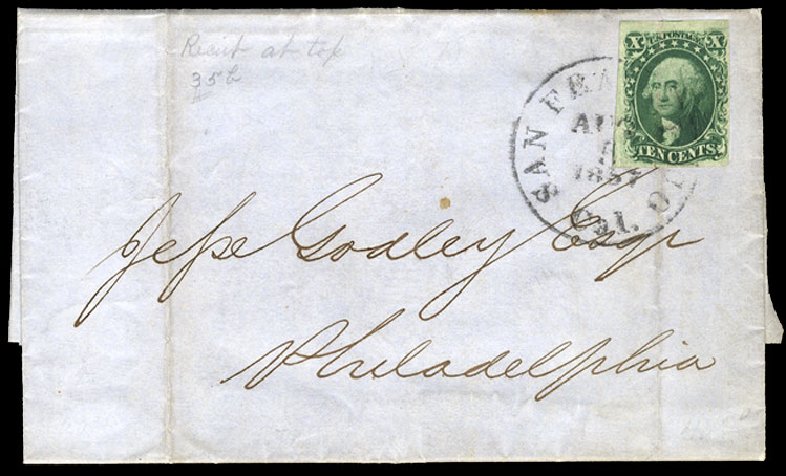 Recut at top
35b
X U.S. POSTAGE X
TEN CENTS
SAN FRANCISCO
AUG
5
1857
Cal.
Jesse Godley Esqr
Philadelphia